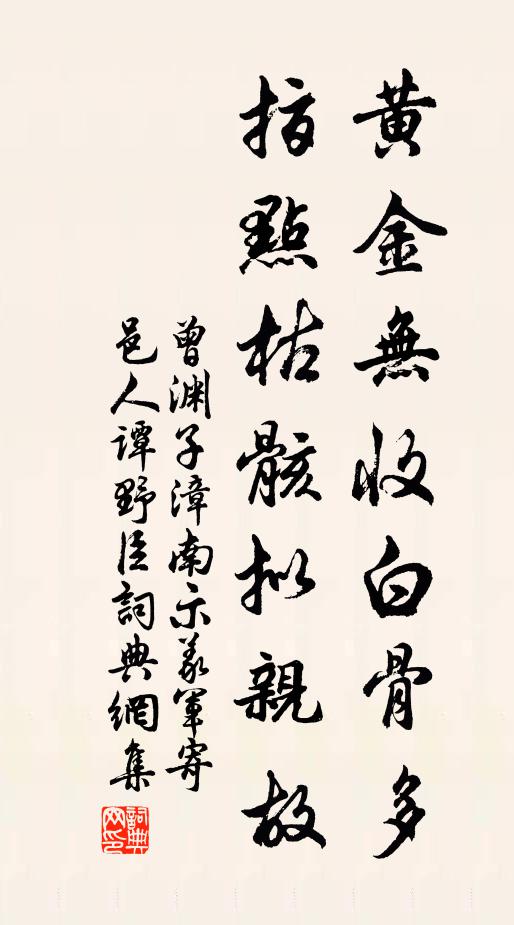 黃金無收白骨多
指點枯骸拟親故
曾淵子漳南示義軍寄
邑人譚野臣詞典網集
詞典网印